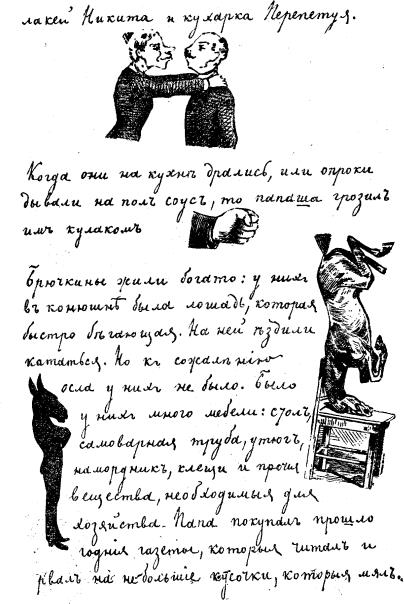 лакей Никита и кухарка Перепетуя.
Когда они на кухнѣ дрались, или опроки
дывали на полъ соусъ, то папаша грозилъ
имъ кулакомъ
Брючкины жили богато: у нихъ
въ конюшнѣ была лошадь, которая
быстро бѣгающая. На ней ѣздили
кататься. Но къ сожалѣнію
осла у нихъ не было. Было
у нихъ много мебели: столъ,
самоварная труба, утюгъ,
намордникъ, клещи и прочія
вещества, необходимыя для
хозяйства. Папа покупалъ прошло
годнія газеты, которыя читалъ и
рвалъ на небольшіе кусочки, которыя мялъ.